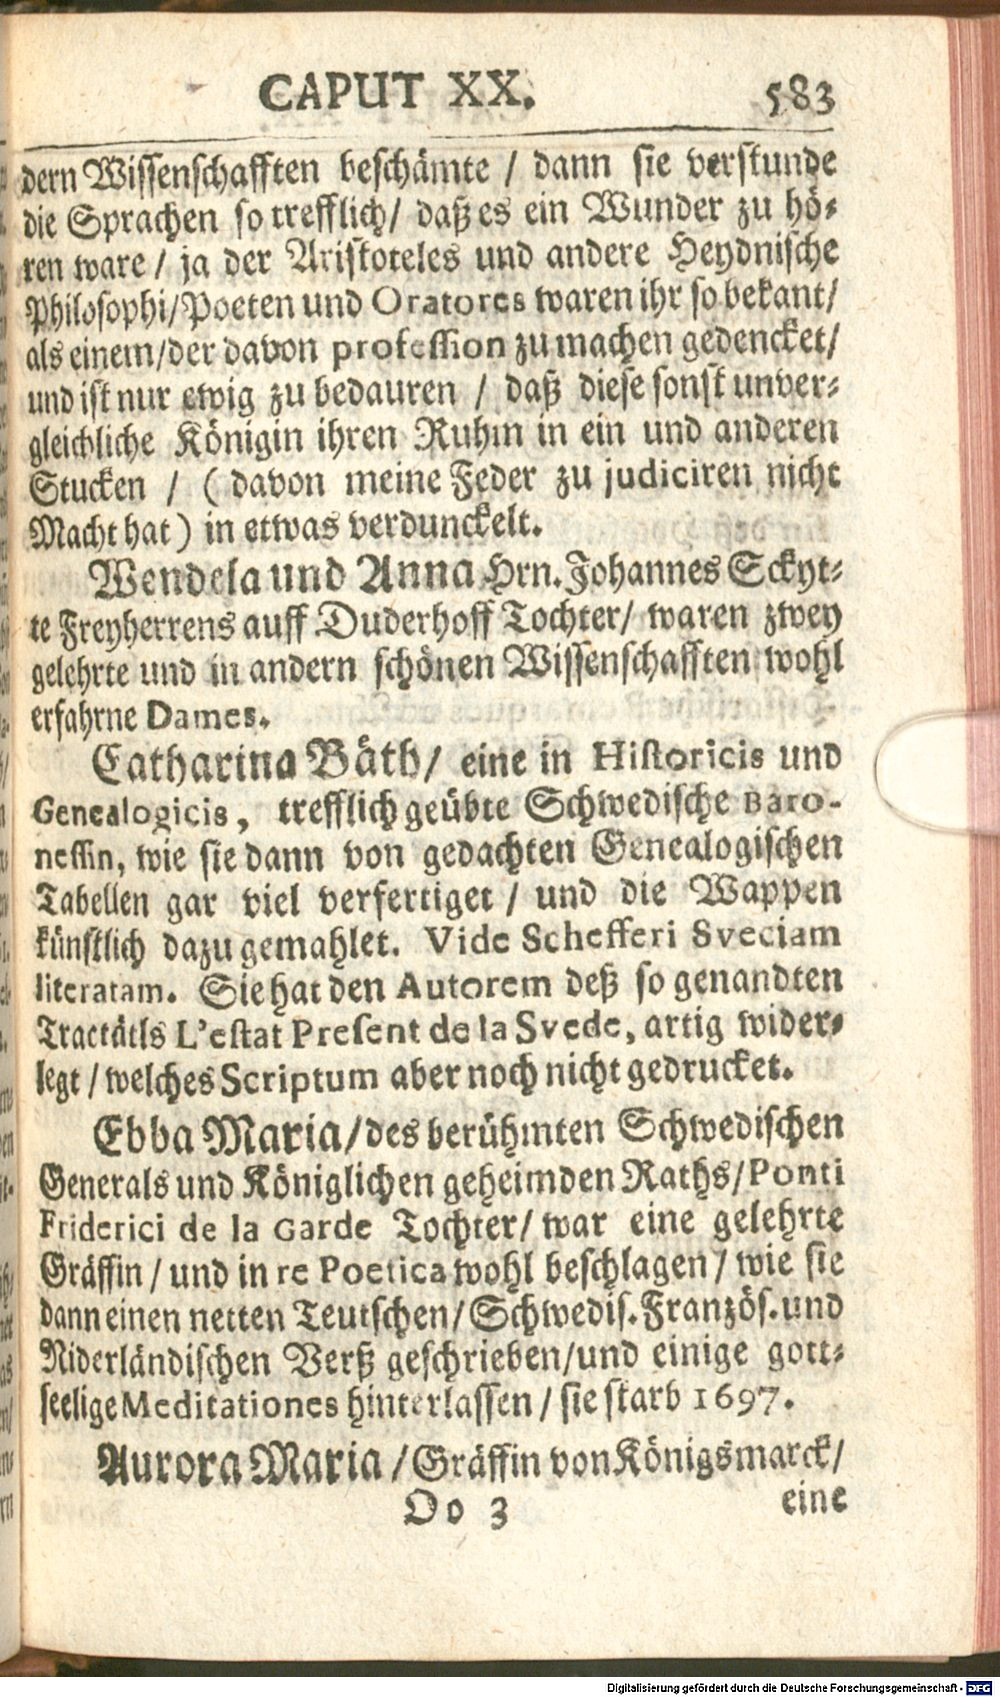 CAPUT XX. 583
dern Wissenschafften beschämte / dann sie verstunde
die Sprachen so trefflich / daß es ein Wunder zu hö-
ren ware / ja der Aristoteles und andere Heydnische
Philosophi / Poeten und Oratores waren ihr so bekant /
als einem / der davon profession zu machen gedencket /
und ist nur ewig zu bedauren / daß diese sonst unver-
gleichliche Königin ihren Ruhm in ein und anderen
Stucken / ( davon meine Feder zu judiciren nicht
Macht hat ) in etwas verdunckelt.
Wendela und Anna Hrn. Johannes Sckyt-
te Freyherrens auff Duderhoff Tochter / waren zwey
gelehrte und in andern schönen Wissenschafften wohl
erfahrne Dames.
Catharina Bäth / eine in Historicis und
Genealogicis, trefflich geübte Schwedische Baro-
nessin, wie sie dann von gedachten Genealogischen
Tabellen gar viel verfertiget / und die Wappen
künstlich dazu gemahlet. Vide Schefferi Sveciam
literatam. Sie hat den Autorem deß so genandten
Tractätls L'estat Present de la Svede, artig wider-
legt / welches Scriptum aber noch nicht gedrucket.
Ebba Maria / des berühmten Schwedischen
Generals und Königlichen geheimden Raths / Ponti
Friderici de la Garde Tochter / war eine gelehrte
Gräffin / und in re Poetica wohl beschlagen / wie sie
dann einen netten Teutschen / Schwedis. Französ. und
Niderländischen Verß geschrieben / und einige gott-
seelige Meditationes hinterlassen / sie starb 1697.
Aurora Maria / Gräffin von Königsmarck /
Oo 3 eine
Digitalisierung gefördert durch die Deutsche Forschungsgemeinschaft - DFG